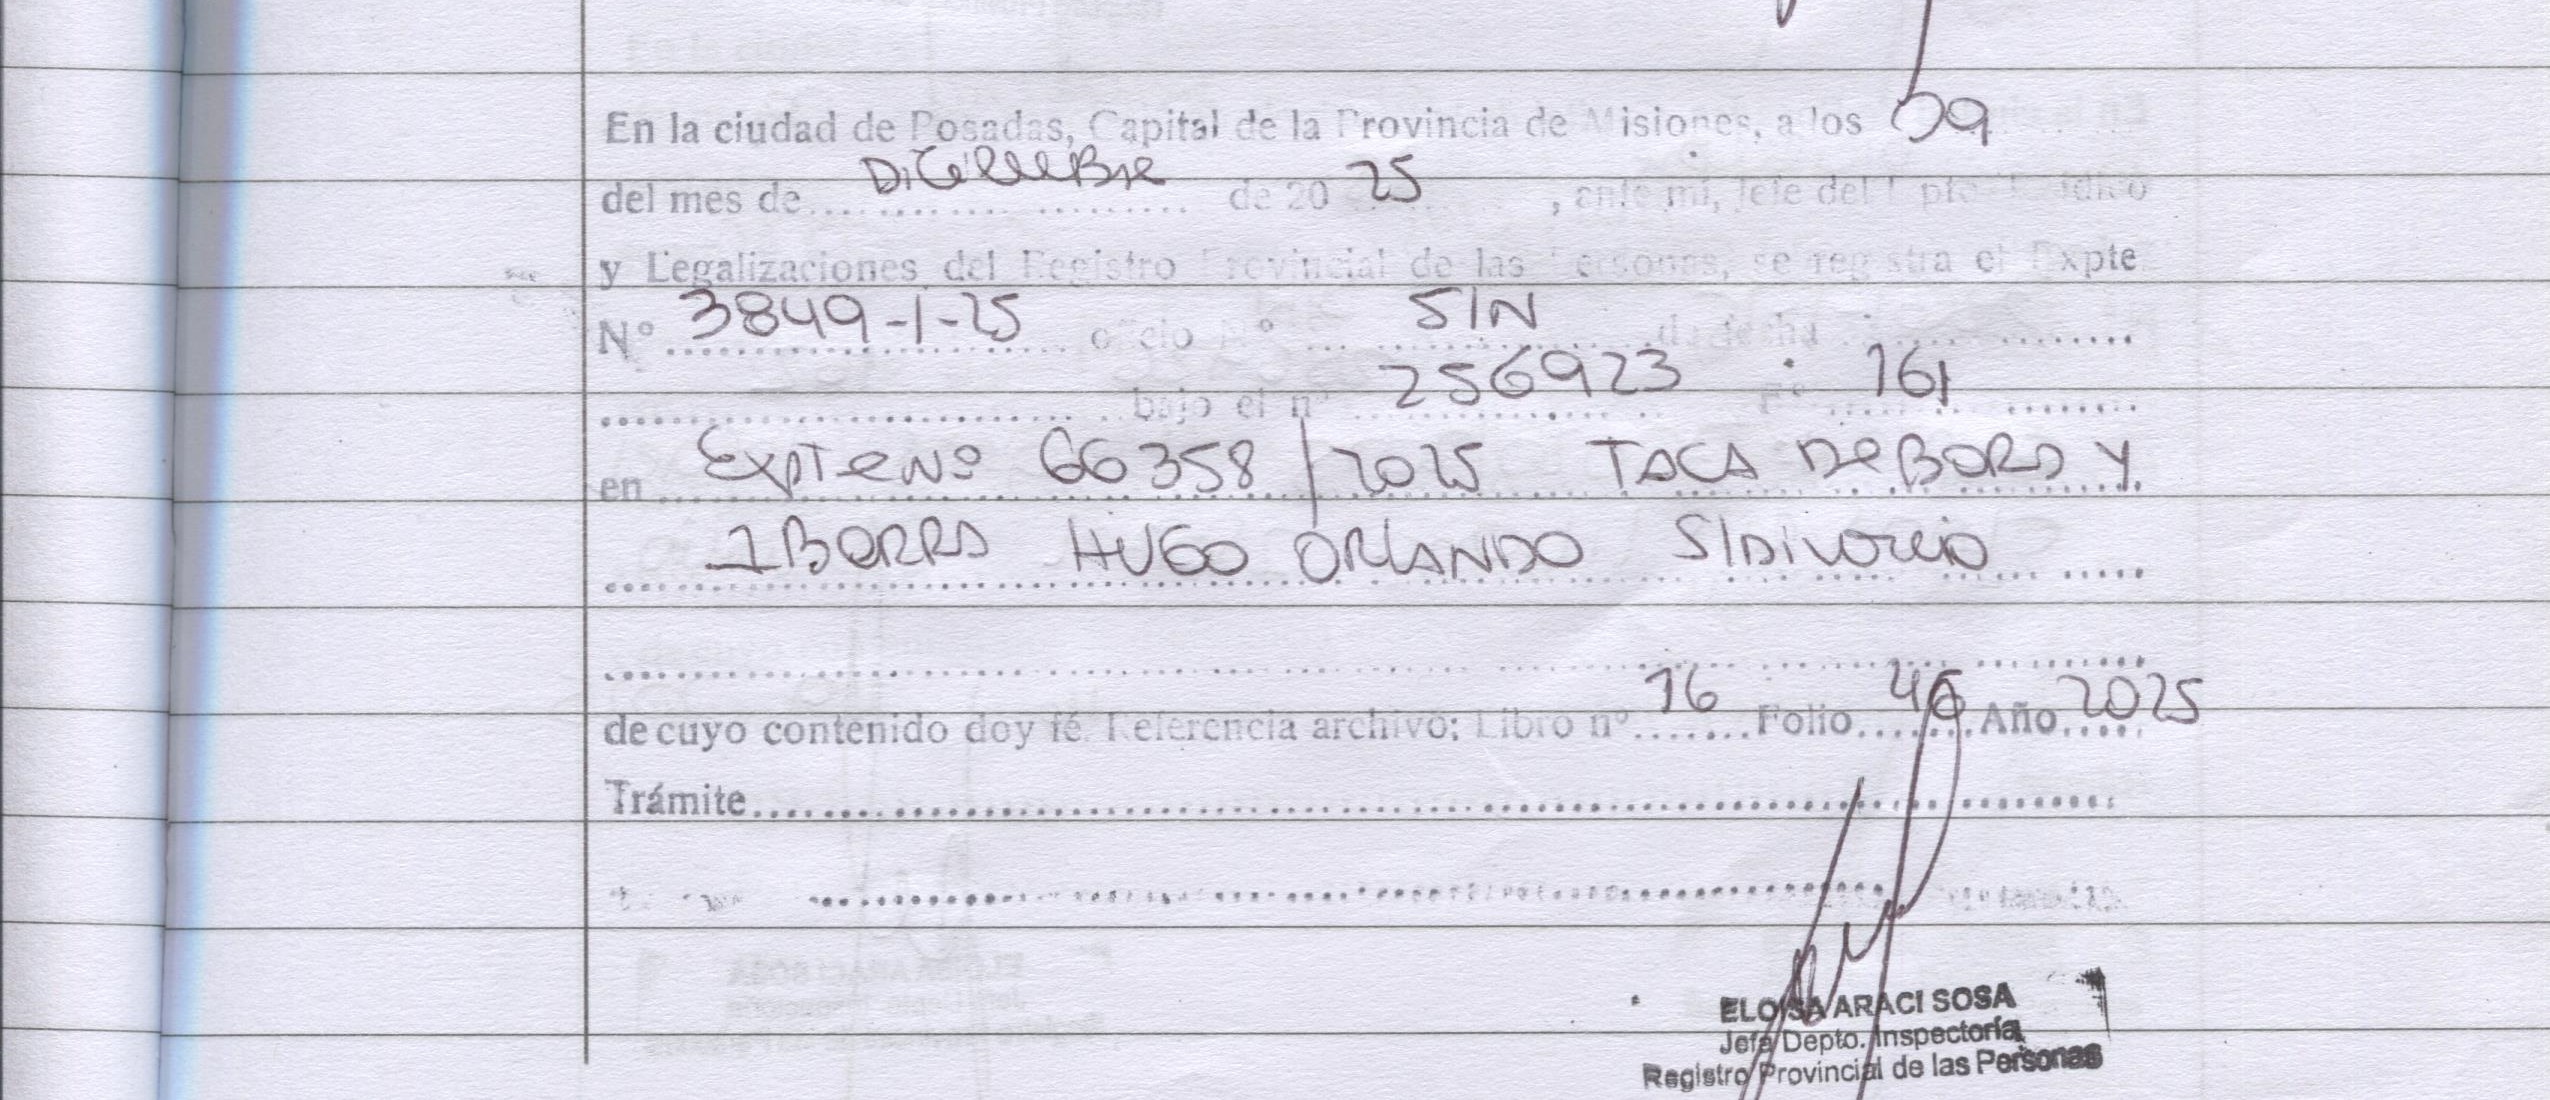 En la ciudad de Posadas, Capital de la Provincia de Misiones, a los 09
del mes de Diciembre de 2025, ante mi, Jefe del Dpto
y Legalizaciones del Registro Provincial de las Personas, se registra el Expte
N° 3849-1-25 oficio N° S/N de fecha
bajo el n° 256923 F° 161
en Expte N° 66358/2025 TOCA DEBORA Y
IBARRA HUGO ORLANDO S/DIVORCIO
de cuyo contenido doy fé. Referencia archivo: Libro n° 16 Folio 46 Año 2025
Trámite
ELOISA ARACI SOSA
Jefa Depto. Inspectoría
Registro Provincial de las Personas